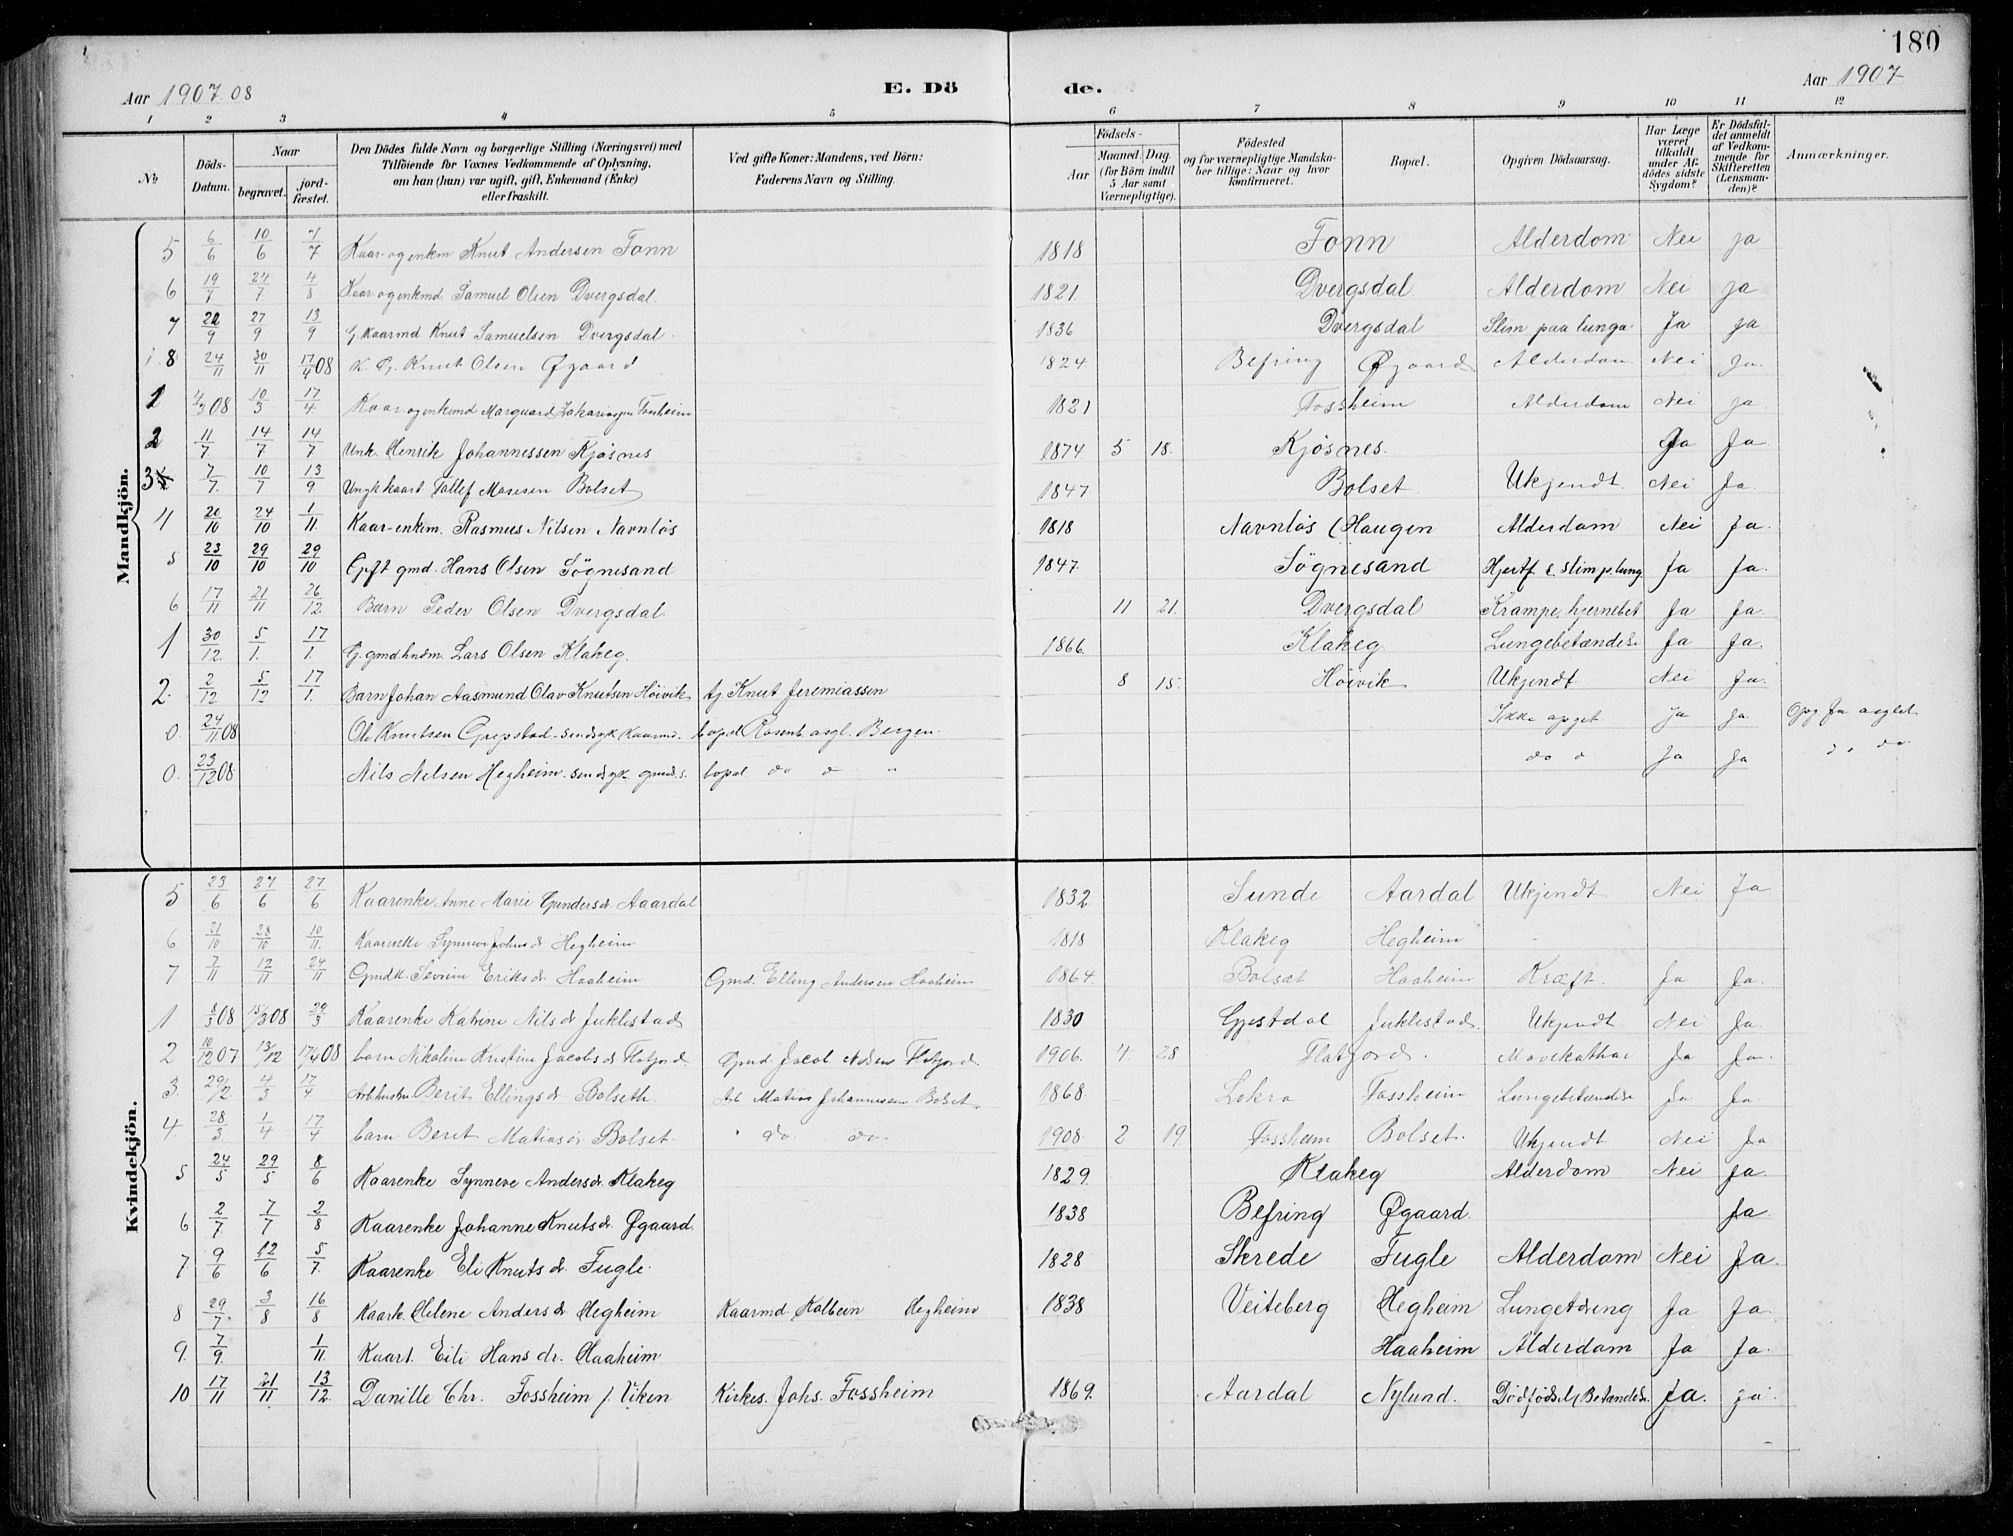 180
Aar 1907 08 E. Dö de. Aar 1907
1 2 3 4 5 6 7 8 9 10 11 12
No Döds-Datum. Naar begravet. jordfæstet. Den Dödes fulde Navn og borgerlige Stilling (Næringsvei) med Tilföiende for Voxnes Vedkommende af Oplysning, om han (hun) var ugift, gift, Enkemand (Enke) eller fraskilt. Ved gifte Koner: Mandens, ved Börn: Faderens Navn og Stilling. Födsels- Aar Maaned. Dag. (for Börn indtil 5 Aar samt Værnepligtige). Födested og for værnepligtige Mandskaber tillige: Naar og hvor konfirmeret. Bopæl. Opgiven Dödsaarsag. Har Læge været tilkaldt under Afdödes sidste Sygdom? Er Dödsfaldet anmeldt af Vedkommende for Skifteretten (Lensmanden)? Anmærkninger.
Mandkjön.
5 6/6 10/6 7/7 Kaar- og enkm Knut Andersen Tonn 1818 Tonn Alderdom Nei ja
6 19/7 24/7 4/8 Kaar og enkmd Samuel Olsen Dvergsdal 1821. Dvergsdal Alderdom Nei ja
7 22/9 27/9 13/9 G. Kaarmd Knut Samuelsen Dvergsdal 1836 Dvergsdal Slim paa lunga Ja ja
8 24/11 30/11 17/4 08 K. G. Knut Olsen Øgaard 1824 Befring Øgaard Alderdom Nei Ja.
1 4/3 08 10/3 17/4 Kaar og enkemd Marquard Zakariassen Fossheim 1821 Fossheim Alderdom Nei ja
2 11/7 14/7 14/7 Unk. Henrik Johannessen Kjøsnes 1874 5 18. Kjøsnes. Ja Ja
3 7/7. 10/7 13/9 Ungk kaart Tollef Mosesen Bolset 1847 Bolset Ukjendt. Nei Ja
4 20/10 24/10 1/11. Kaar-enkem. Rasmus Nilsen Navnløs 1818 Navnløs (Haugen Alderdom Nei Ja.
5 23/10 29/10 29/10 Gift gmd. Hans Olsen Søgnesand 1847. Søgnesand Hjertf & slim p. lung. Ja Ja.
6 17/11 21/11 26/12 Barn Peder Olsen Dvergsdal 11 21. Dvergsdal Krampe, hjernebet Ja Ja
1 30/12. 5/1. 17/1. G. gmdhusm. Lars Olsen Klakeg. 1866. Klakeg Lungebetændelse Ja Ja.
2. 2/12 5/12 17/1. Barn Johan Aasmund Olav Knutsen Høivik tj. Knut Jeremiassen 8 15. Høivik Ukjendt Nei Ja.
0. 24/11 08 Ole Knutsen Grepstad - sindsyk Kaarmd. bopæl Rosenb asyl. Bergen. Ikke opget ja ja Opg fra asylet
0. 23/12 08 Nils Nilsen Hegheim. sindsyk. gmds. bopæl do o " do o Ja Ja do do
Kvindekjön.
5 23/6 27/6 27/6 Kaarenke Anne Marie Gundersdr Aaardal 1832 Sunde Aardal Ukjendt Nei Ja
6 21/10 28/10 10/11. Kaarenke Synneve Johnsdr Hegheim 1818 Klakeg Hegheim
7 7/11 12/11 24/11 Gmdk. Severine Eriksdr. Haaheim Gmd. Elling Andersen Haaheim 1864. Bolset Haaheim Kræft. Ja Ja.
1 8/3 08 15/3 08 29/3 Kaarenke Katrine Nilsdr Juklestad 1830 Gjestdal Juklestad. Ukjendt Nei Ja.
2 10/12 07 13/12 17/4 08 barn Nikoline Kristine Jacobsdr Flatjord. Gmd Jacob Flatjord. 1906. 4. 28 Flatjord. Mavekathar Ja Ja.
3. 29/2 4/3 17/4 Arbhustru Berit Ellingsdr Bolseth. Arb Matias Johannessen Bolset 1868 Fossheim Lungebetændelse Ja Ja
4. 28/3 1/4 17/4 barn Berit Matiasdr Bolset. " do. do. 1908. 2 19. Fossheim Bolset. Ukjendt Nei Ja
5 24/5 29/5 8/6 Kaarenke Synneve Andersdr. Klakeg 1829. Klakeg Alderdom Nei Ja.
6 2/7. 7/7 2/8 Kaarenke Johanne Knutsdr. Øgaard. 1838 Befring Øgaard. Ja.
7. 9/6 12/6 5/7. Kaarenke Eli Knutsdr. Fugle. 1828 Skrede Fugle Alderdom Nei Ja.
8 29/7. 3/8 16/8 Kaark. Helene Andersdr Hegheim Kaarmd Kolbein Hegheim 1838 Veiteberg Hegheim Lungetæring Ja Ja.
9. 7/9. 1/11. Kaart. Eili Hansdr. Haaheim. Haaheim Alderdom Ja Ja.
10 17/11 21/11 13/12. Danille Chr. Fossheim f. Viken Kirkes. Johs. Fossheim 1869. Aardal Nylund. Dødfødsel (Betændelse. Ja. ja.